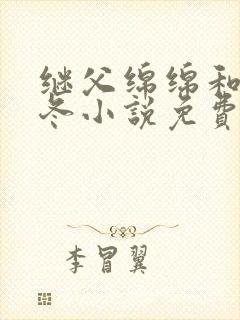 继父绵绵和
冬小説免費
李冒翼